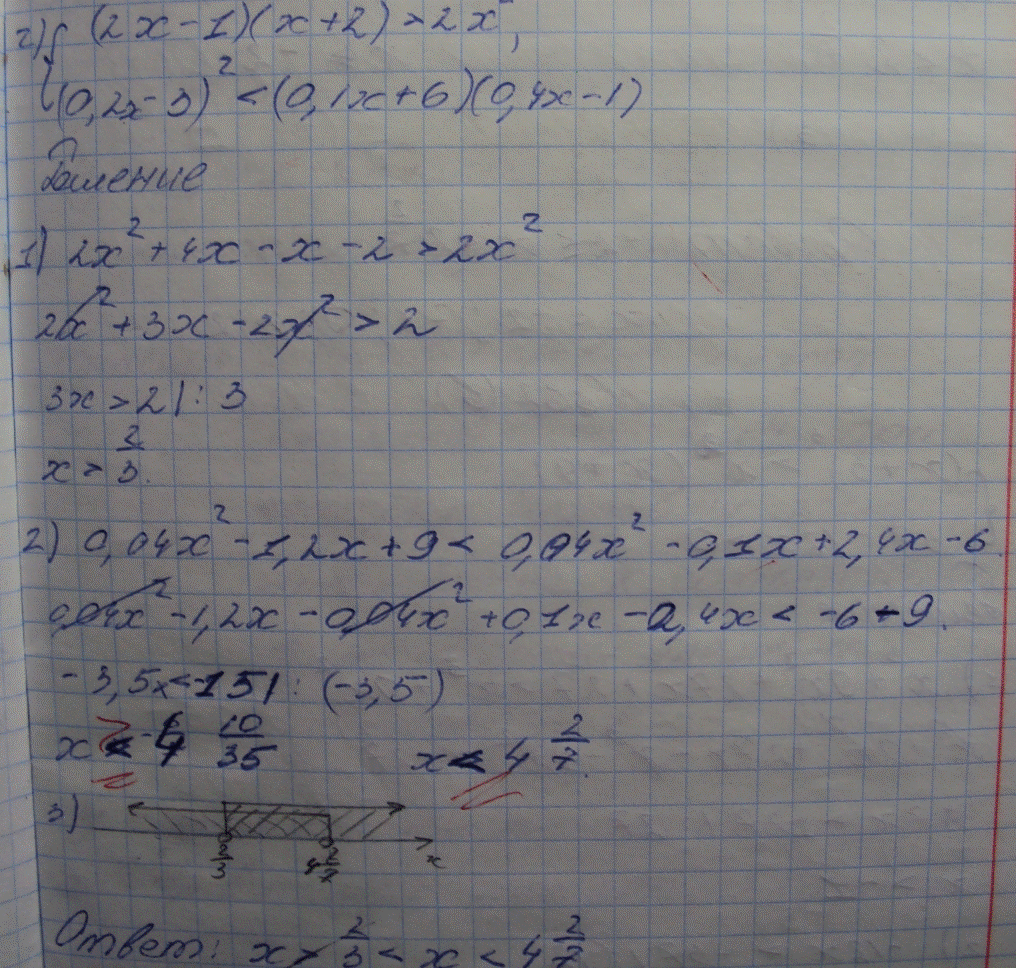 2) { (2x-1)(x+2) > 2x²,
(0,2x-3)² < (0,1x+6)(0,4x-1)
Решение
1) 2x² + 4x - x - 2 > 2x²
2x² + 3x - 2x² > 2
3x > 2 | : 3
x > 2/3.
2) 0,04x² - 1,2x + 9 < 0,04x² - 0,1x + 2,4x - 6
0,04x² - 1,2x - 0,04x² + 0,1x - 2,4x < -6 - 9.
-3,5x < -15 | : (-3,5)
x < 4 10/35 x < 4 2/7.
3)
2/3 4 2/7 x
Ответ: x > 2/3 < x < 4 2/7